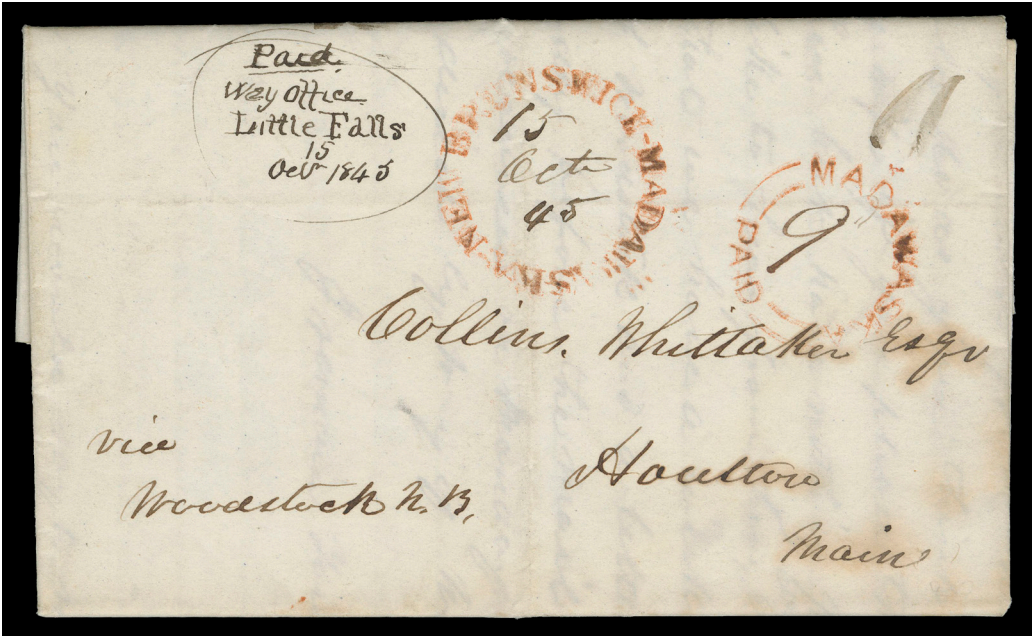 Paid
Way Office
Little Falls
15
Octr 1845
NEW BRUNSWICK-MADAWASKA-
15
Octr
45
11
MADAWASKA
PAID
9
Collins. Whittaker Esqr
via
Houlton
Woodstock N.B.
Main